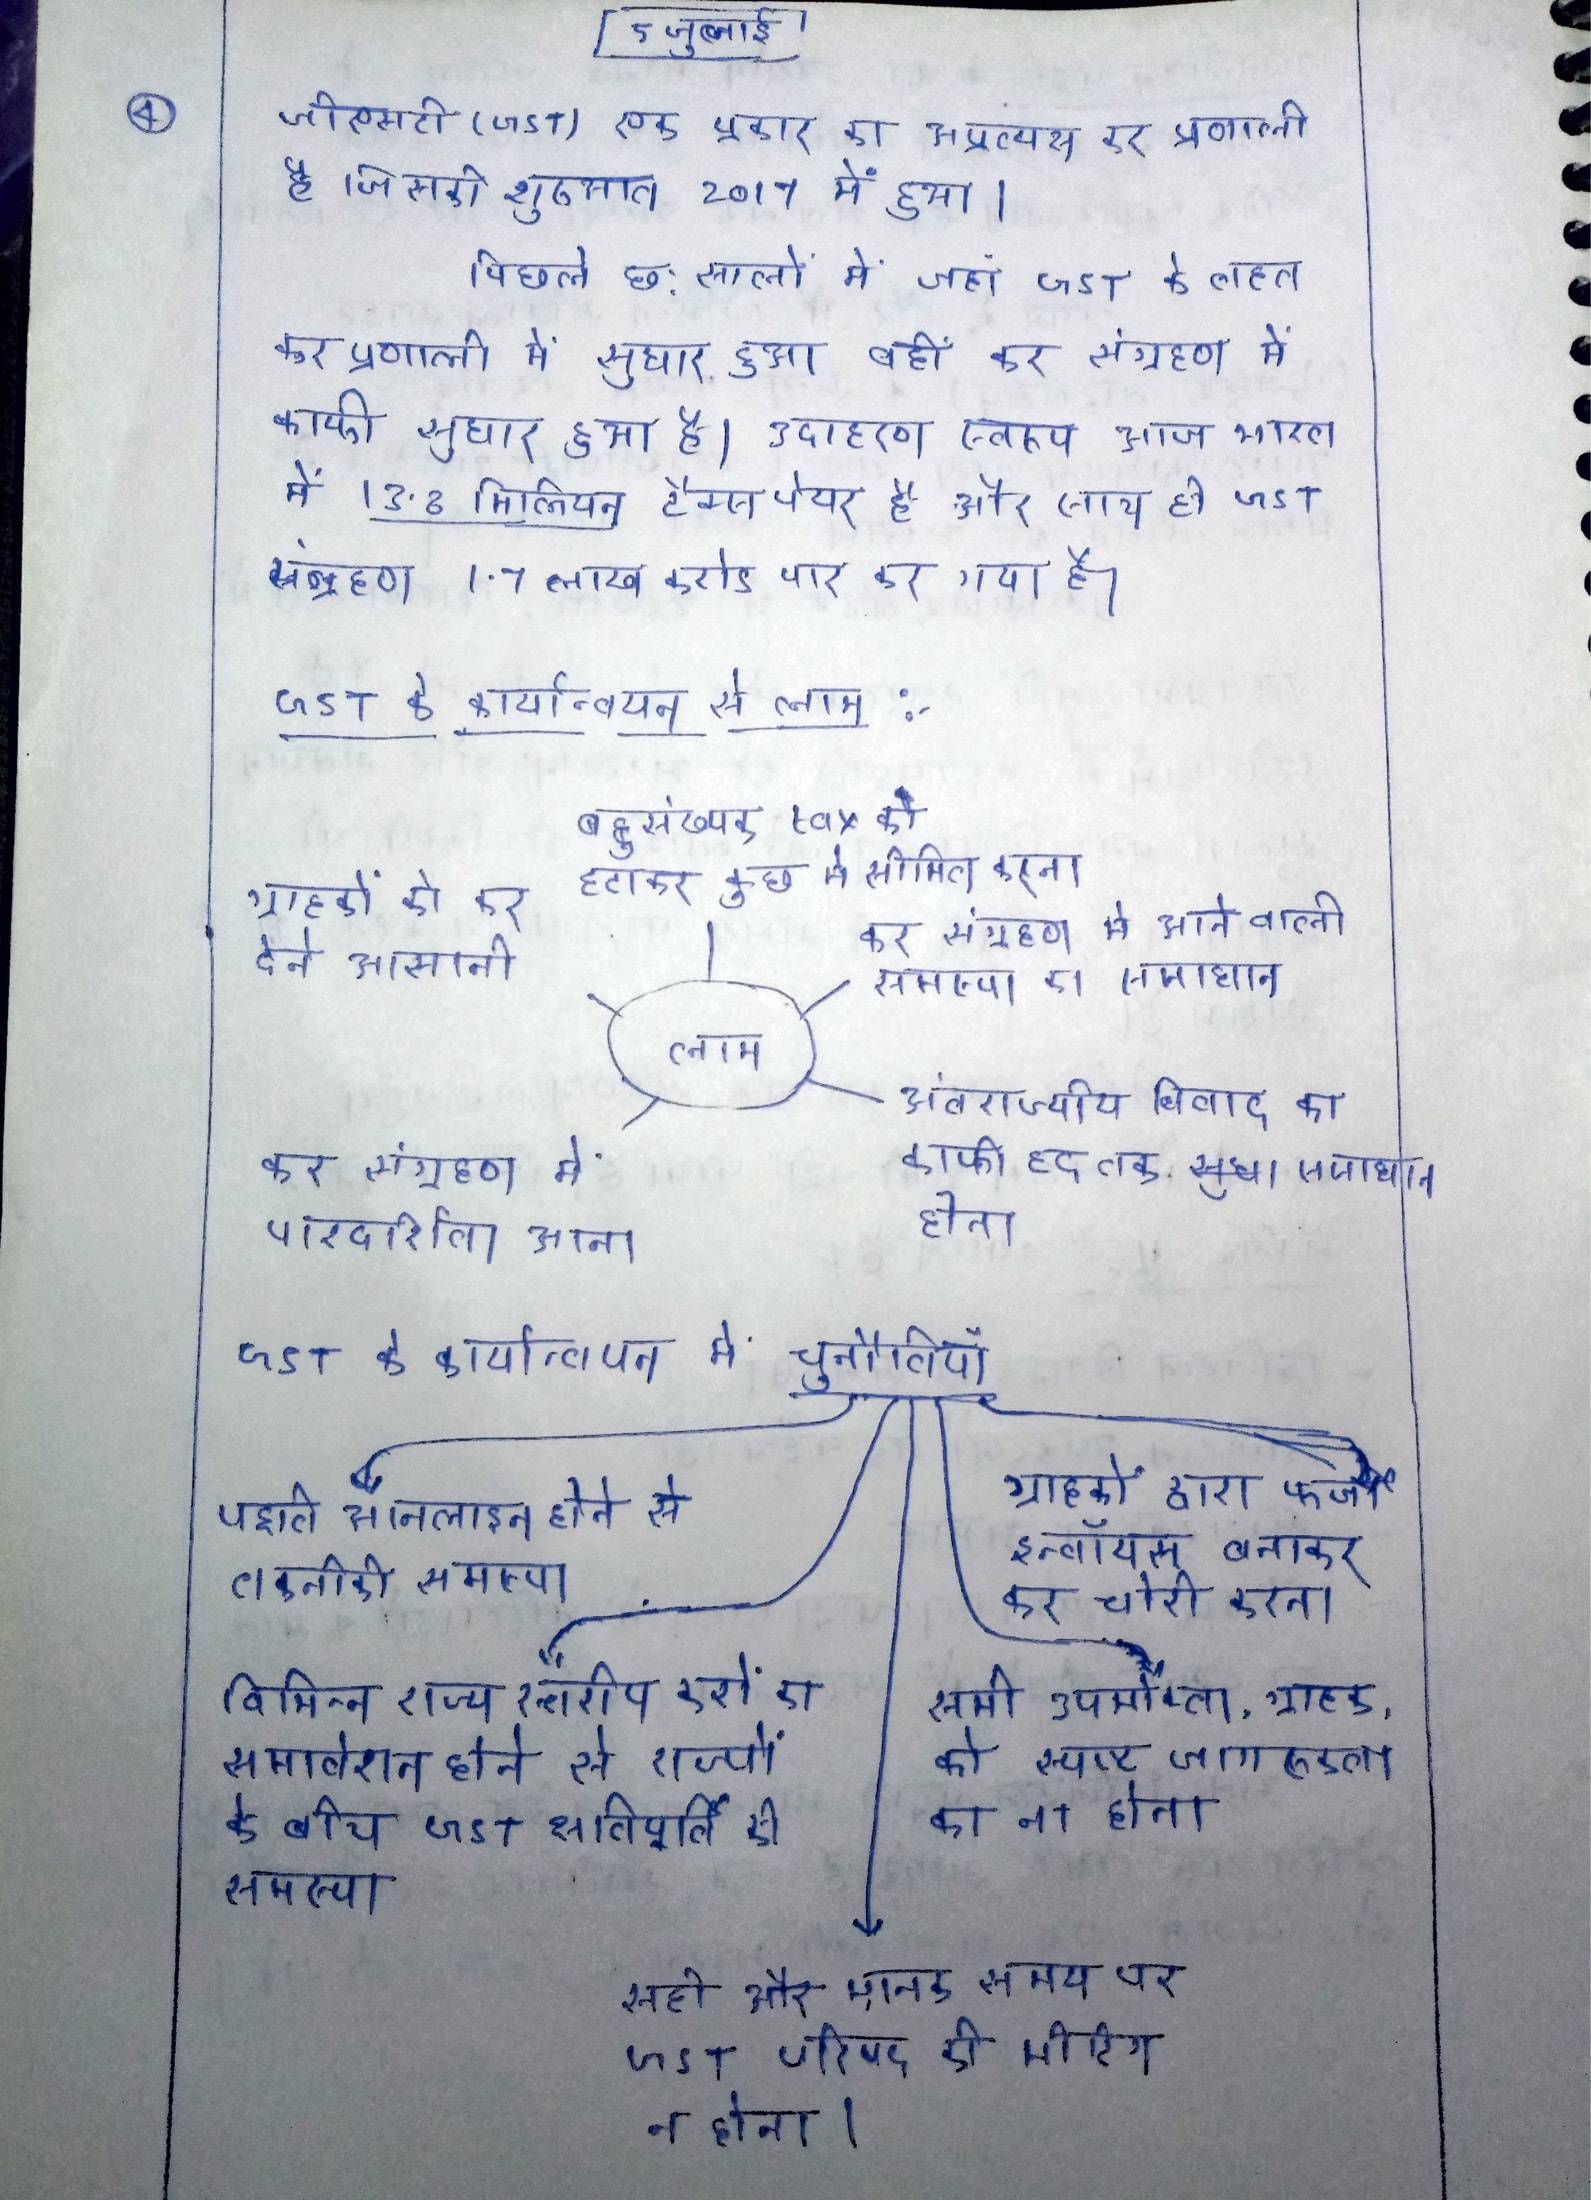 5 जुलाई
④
जीएसटी (GST) एक प्रकार का अप्रत्यक्ष कर प्रणाली
है जिसकी शुरुआत 2017 में हुआ।
पिछले छ: सालों में जहां GST के तहत
कर प्रणाली में सुधार हुआ वहीं कर संग्रहण में
काफी सुधार हुआ है। उदाहरण स्वरूप आज भारत
में 13.8 मिलियन टैक्स पेयर है और साथ ही GST
संग्रहण 1.7 लाख करोड पार कर गया है।
GST के कार्यान्वयन से लाभ :-
बहुसंख्यक tax को
हटाकर कुछ में सीमित करना
ग्राहकों को कर
देने आसानी
कर संग्रहण में आने वाली
समस्या का समाधान
लाभ
अंतराज्यीय विवाद का
काफी हद तक समाधान
होना
कर संग्रहण में
पारदर्शिता आना
GST के कार्यान्वयन में चुनौतियाँ
पद्धति ऑनलाइन होने से
तकनीकी समस्या
ग्राहकों द्वारा फर्जी
इन्वॉयस बनाकर
कर चोरी करना
विभिन्न राज्य स्तरीय करों का
समावेशन होने से राज्यों
के बीच GST क्षतिपूर्ति की
समस्या
सभी उपभोक्ता, ग्राहक,
को स्पष्ट जागरूकता
का ना होना
सही और मानक समय पर
GST परिषद की मीटिंग
न होना।